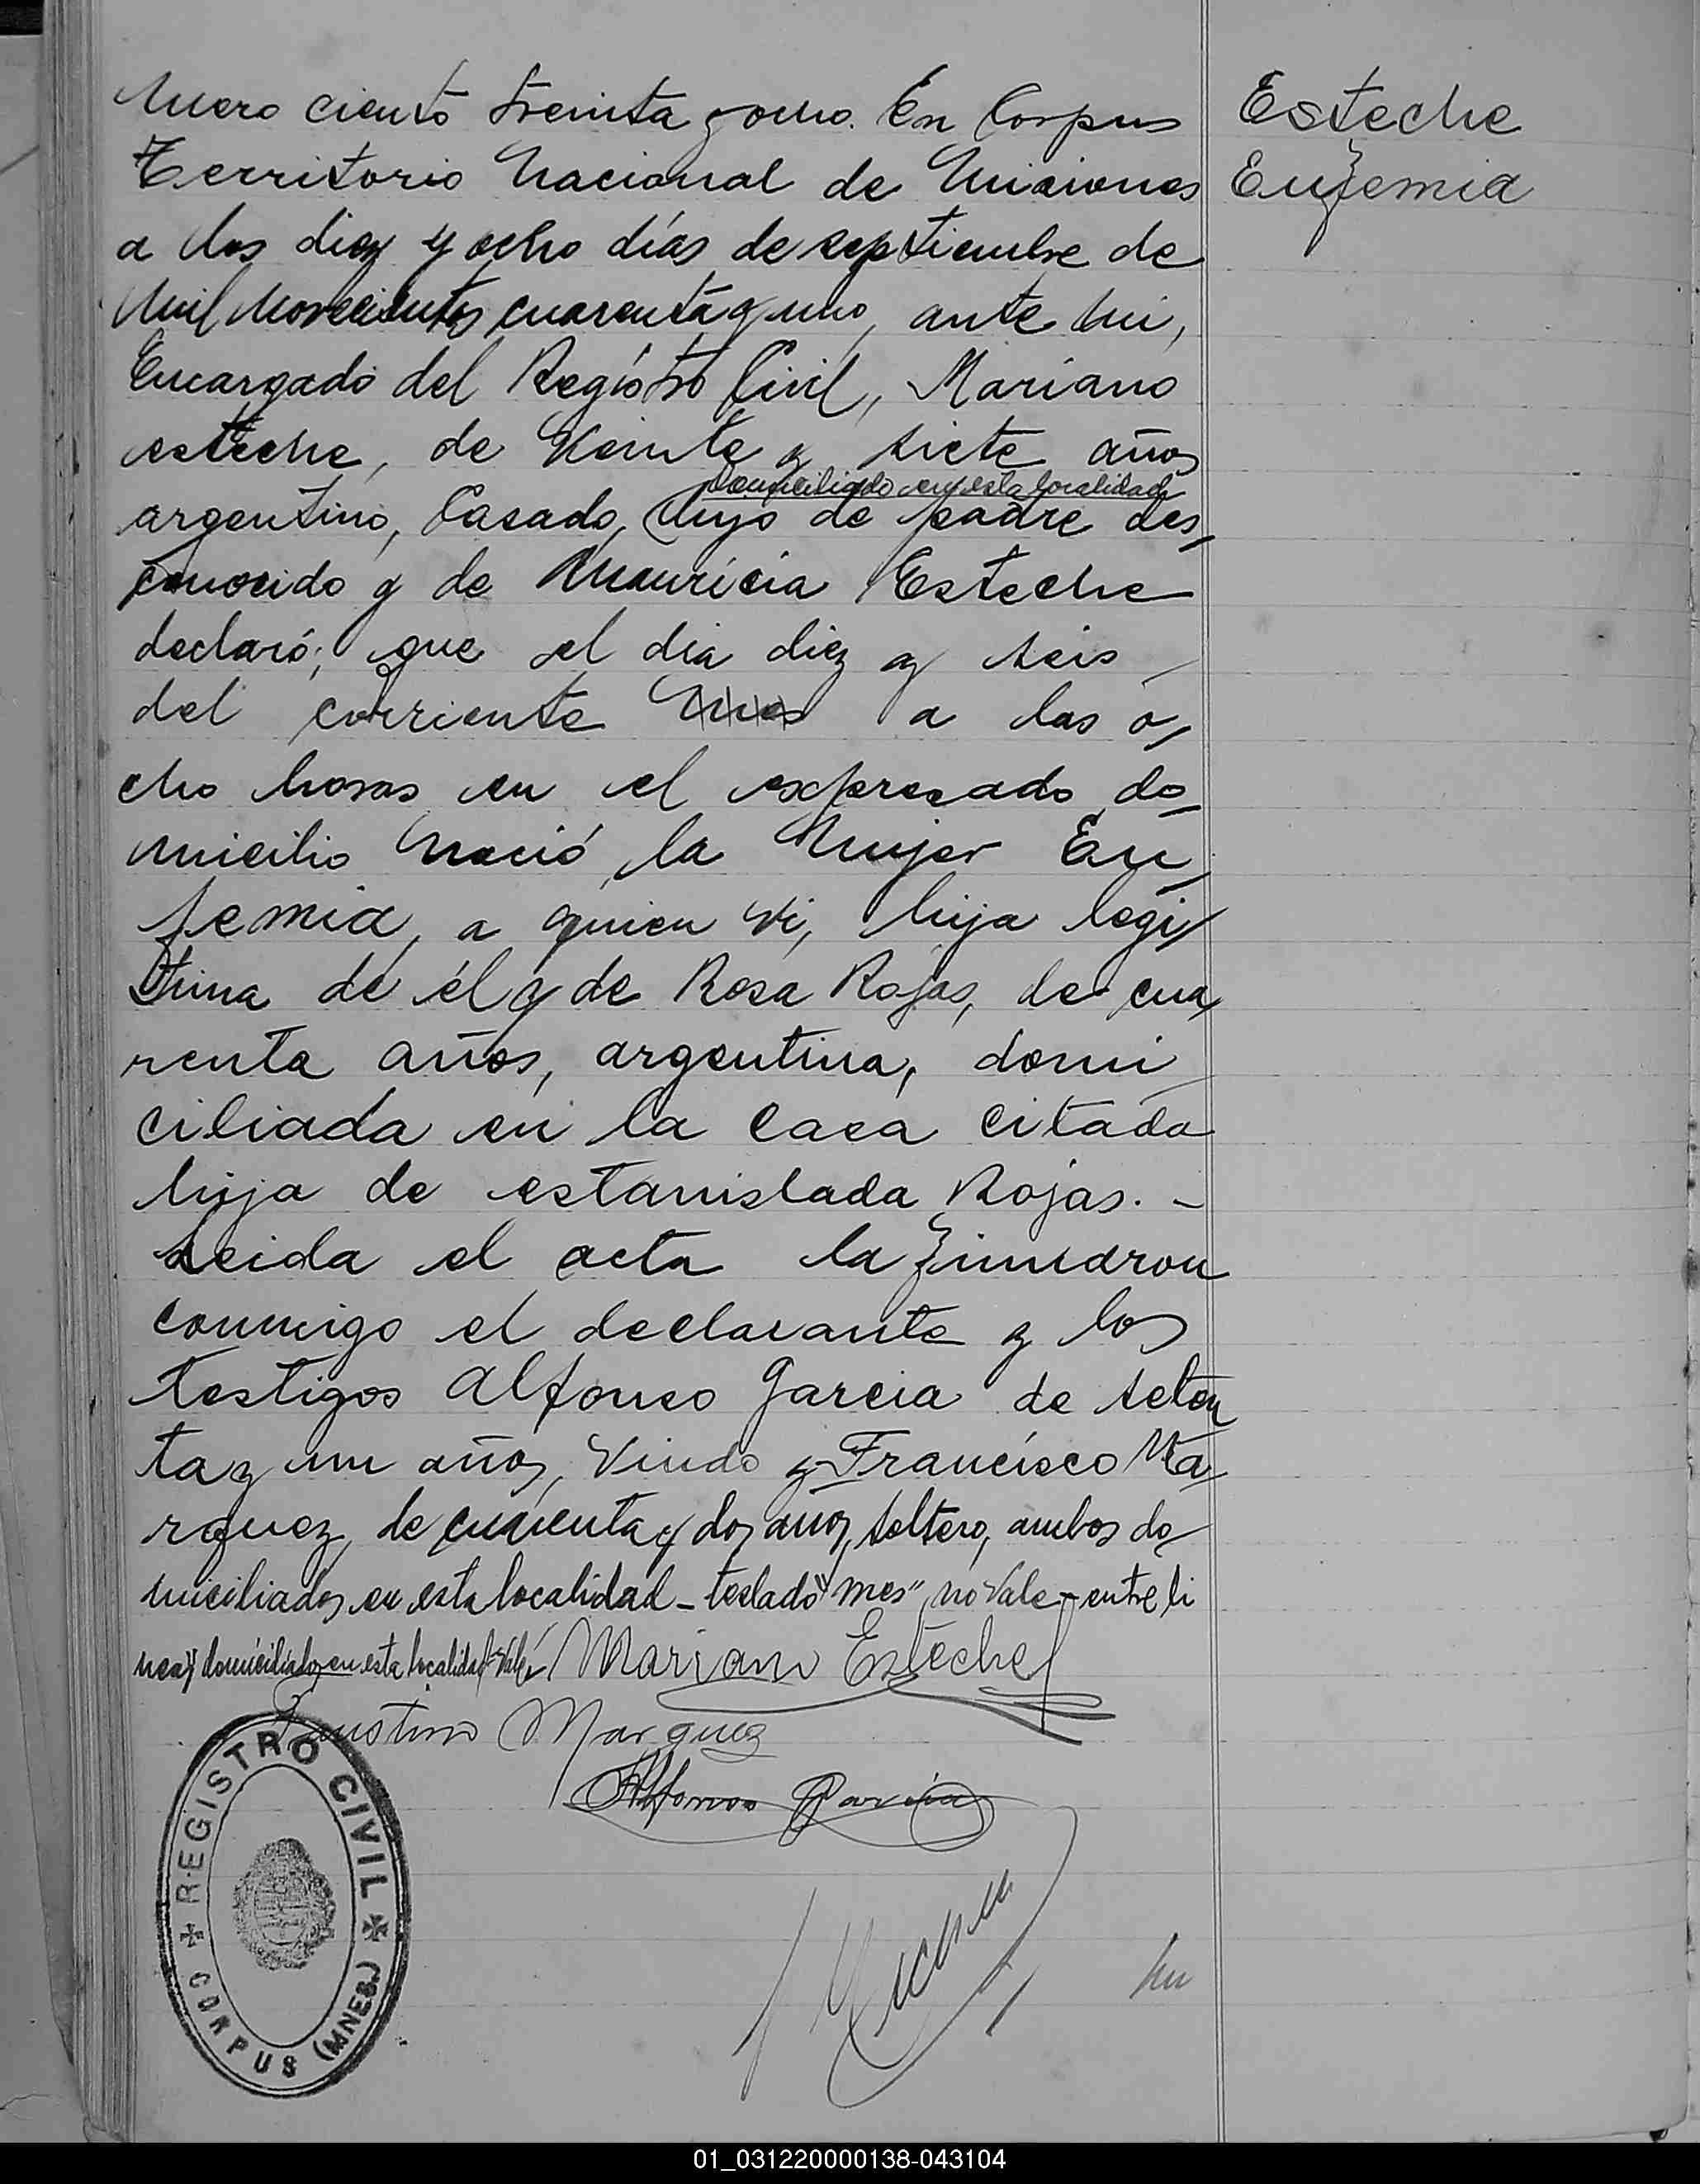 Número ciento treinta y ocho. En Corpus
Territorio Nacional de Misiones
a los diez y ocho días de septiembre de
Mil Novecientos cuarenta y uno, ante mi,
Encargado del Registro Civil, Mariano
esteche, de Veinte y siete años
domiciliado en esta localidad
argentino, Casado, hijo de padre des
conocido y de Mauricia Esteche
declaró; que el dia diez y seis
del corriente mes a las o
cho horas en el expresado do
micilio Nació, la Mujer Eu
femia, a quien Vi, hija legi
tima de él y de Rosa Rojas, de cua
renta años, argentina, domi
ciliada en la casa citada
hija de estanislada Rojas. -
Leida el acta la firmaron
conmigo el declarante y los
testigos Alfonso Garcia de seten
ta y un años, Viudo y Francisco Ma
rquez, de cuarenta y dos años, soltero, ambos do
miciliados en esta localidad - teslado "mes" no vale - entre li
neas domiciliado en esta localidad - Vale
Mariano Esteche
Faustino Marquez
Alfonso Garcia
REGISTRO CIVIL
CORPUS (MNES.)
Esteche
Eufemia
01_031220000138-043104